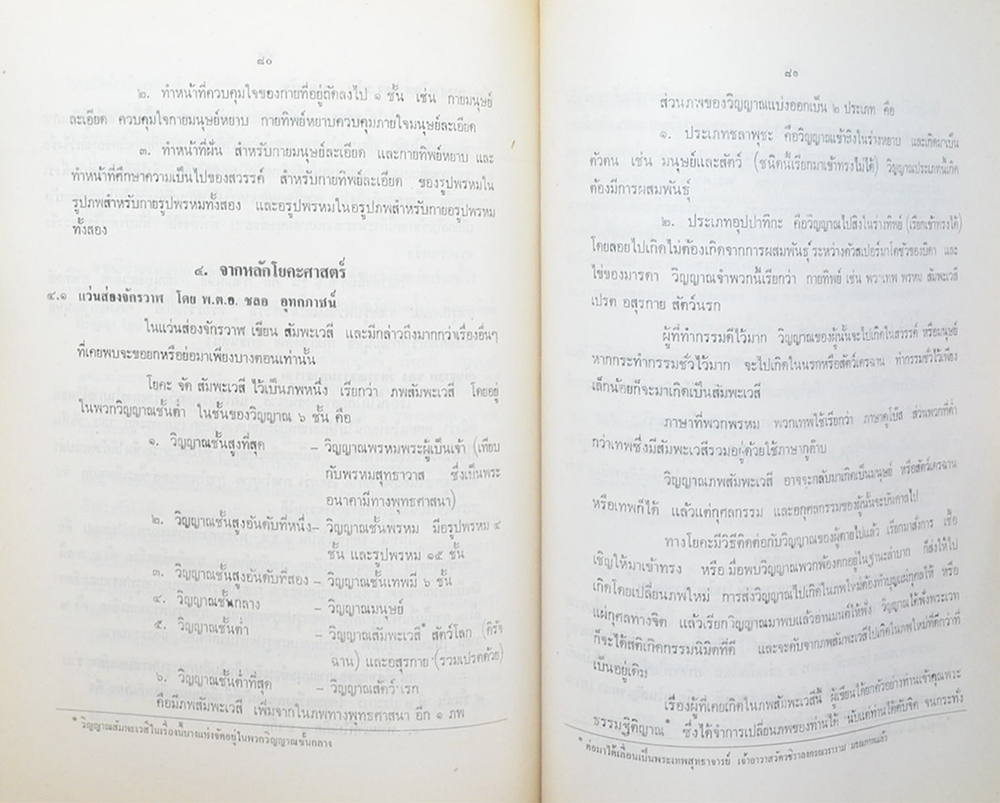 ๘๐
๒. ทำหน้าที่ควบคุมใจของกายที่อยู่ถัดลงไป ๑ ชั้น เช่น กายมนุษย์
ละเอียด ควบคุมใจกายมนุษย์หยาบ กายทิพย์หยาบควบคุมภายใจมนุษย์ละเอียด
๓. ทำหน้าที่ฝัน สำหรับกายมนุษย์ละเอียด และกายทิพย์หยาบ และ
ทำหน้าที่ศึกษาความเป็นไปของสวรรค์ สำหรับกายทิพย์ละเอียด ของรูปพรหมใน
รูปภพสำหรับกายรูปพรหมทั้งสอง และอรูปพรหมในอรูปภพสำหรับกายอรูปพรหม
ทั้งสอง
๔. จากหลักโยคะศาสตร์
๔.๑ แว่นส่องจักรวาฬ โดย พ.ต.อ. ชลอ อุทกภาชน์
ในแว่นส่องจักรวาฬ เขียน สัมพะเวสี และมีกล่าวถึงมากกว่าเรื่องอื่นๆ
ที่เคยพบจะขอยกหรือย่อมาเพียงบางตอนเท่านั้น
โยคะ จัด สัมพะเวสี ไว้เป็นภพหนึ่ง เรียกว่า ภพสัมพะเวสี โดยอยู่
ในพวกวิญญาณชั้นต่ำ ในชั้นของวิญญาณ ๖ ชั้น คือ
๑. วิญญาณชั้นสูงที่สุด – วิญญาณพรหมพระผู้เป็นเจ้า (เทียบ
กับพรหมสุทธาวาส ซึ่งเป็นพระ
อนาคามีทางพุทธศาสนา)
๒. วิญญาณชั้นสูงอันดับที่หนึ่ง– วิญญาณชั้นพรหม มีอรูปพรหม ๔
ชั้น และรูปพรหม ๑๕ ชั้น
๓. วิญญาณชั้นสูงอันดับที่สอง – วิญญาณชั้นเทพมี ๖ ชั้น
๔. วิญญาณชั้นกลาง – วิญญาณมนุษย์
๕. วิญญาณชั้นต่ำ – วิญญาณสัมพะเวสี* สัตว์โลก (ดิรัจ
ฉาน) และอสุรกาย (รวมเปรตด้วย)
๖. วิญญาณชั้นต่ำที่สุด – วิญญาณสัตว์ เรก
คือมีภพสัมพะเวสี เพิ่มจากในภพทางพุทธศาสนา อีก ๑ ภพ
* วิญญาณสัมพะเวสีในเรื่องนี้บางแห่งจัดอยู่ในพวกวิญญาณชั้นกลาง
๘๑
ส่วนภพของวิญญาณแบ่งออกเป็น ๒ ประเภท คือ
๑. ประเภทชลาพุชะ คือวิญญาณเข้าสิงในร่างหยาบ และเกิดมาเป็น
ตัวตน เช่น มนุษย์และสัตว์ (ชนิดนี้เรียกมาเข้าทรงไม่ได้) วิญญาณประเภทนี้เกิด
ต้องมีการผสมพันธุ์
๒. ประเภทอุปปาทิกะ คือวิญญาณไปสิงในร่างทิพย์ (เรียกเข้าทรงได้)
โดยลอยไปเกิดไม่ต้องเกิดจากการผสมพันธุ์ระหว่างตัวสเปอร์มาโตซัวของบิดา และ
ไข่ของมารดา วิญญาณจำพวกนี้เรียกว่า กายทิพย์ เช่น พวกเทพ พรหม สัมพะเวสี
เปรต อสุรกาย สัตว์นรก
ผู้ที่ทำกรรมดีไว้มาก วิญญาณของผู้นั้นจะไปเกิดในสวรรค์ หรือมนุษย์
หากกระทำกรรมชั่วไว้มาก จะไปเกิดในนรกหรือสัตว์เดรฉาน ทำกรรมชั่วไว้เพียง
เล็กน้อยก็จะมาเกิดเป็นสัมพะเวสี
ภาษาที่พวกพรหม พวกเทพใช้เรียกว่า ภาษาคูโบ๊ส ส่วนพวกที่ต่ำ
กว่าเทพซึ่งมีสัมพะเวสีรวมอยู่ด้วยใช้ภาษากูด๊าบ
วิญญาณภพสัมพะเวสี อาจจะกลับมาเกิดเป็นมนุษย์ หรือสัตว์เดรฉาน
หรือเทพก็ได้ แล้วแต่กุศลกรรม และอกุศลกรรมของผู้นั้นจะบันดาลไป
ทางโยคะมีวิธีติดต่อกับวิญญาณของผู้ตายไปแล้ว เรียกมาสั่งการ เชื้อ
เชิญให้มาเข้าทรง หรือ เมื่อพบวิญญาณพวกพ้องตกอยู่ในฐานะลำบาก ก็ส่งให้ไป
เกิดโดยเปลี่ยนภพใหม่ การส่งวิญญาณไปเกิดในภพใหม่ต้องทำบุญแผ่กุศลให้ หรือ
แผ่กุศลทางจิต แล้วเรียกวิญญาณมาพบแล้วอ่านมนต์ให้ฟัง วิญญาณได้ฟังพระเวท
ก็จะได้สติเกิดกรรมนิมิตที่ดี และจะดับจากภพสัมพะเวสีไปเกิดในภพใหม่ที่ดีกว่าที่
เป็นอยู่เดิม
เรื่องผู้ที่เคยเกิดในภพสัมพะเวสีนี้ ผู้เขียนได้ยกตัวอย่างท่านเจ้าคุณพระ
ธรรมฐิติญาณ* ซึ่งได้จำการเปลี่ยนภพของท่านได้ นับแต่ท่านได้ดับจิต จนกระทั่ง
* ต่อมาได้เลื่อนเป็นพระเทพสุทธาจารย์ เจ้าอาวาสวัดวชิราลงกรณวราราม มรณภาพแล้ว